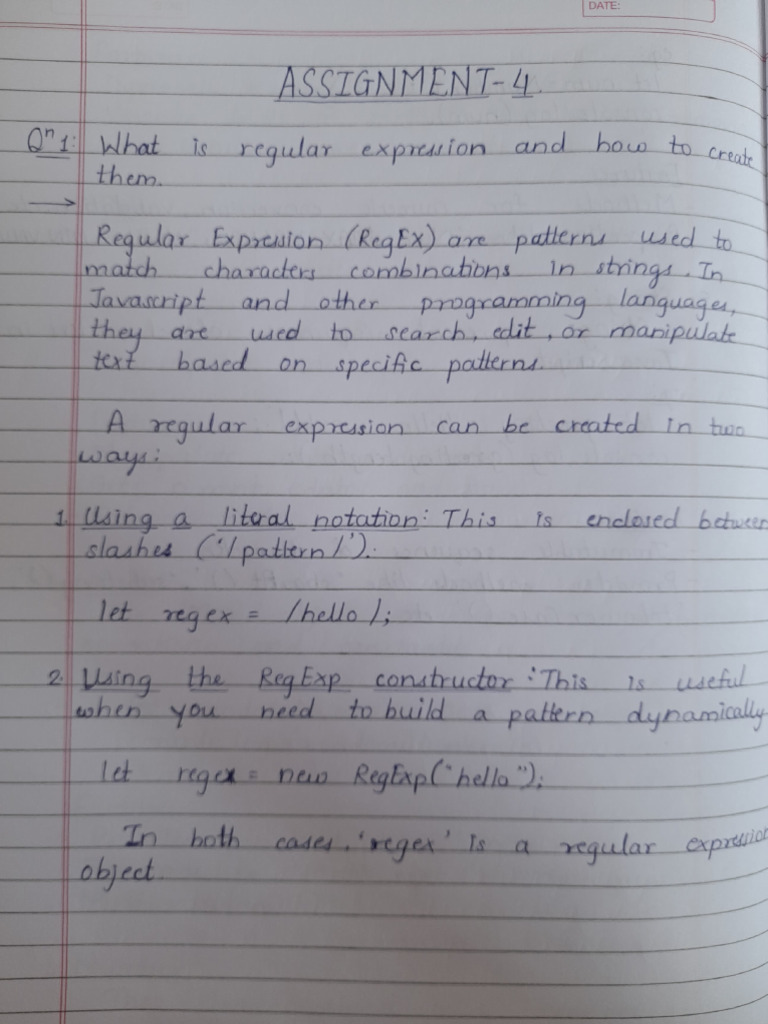 DATE:
ASSIGNMENT-4
Qn 1: What is regular expression and how to create
them.
→
Regular Expression (RegEx) are patterns used to
match characters combinations in strings. In
Javascript and other programming languages,
they are used to search, edit, or manipulate
text based on specific patterns.
A regular expression can be created in two
ways:
1. Using a literal notation: This is enclosed between
slashes ('/pattern/').
let regex = /hello/;
2. Using the RegExp constructor: This is useful
when you need to build a pattern dynamically
let regex = new RegExp("hello");
In both cases, 'regex' is a regular expression
object.